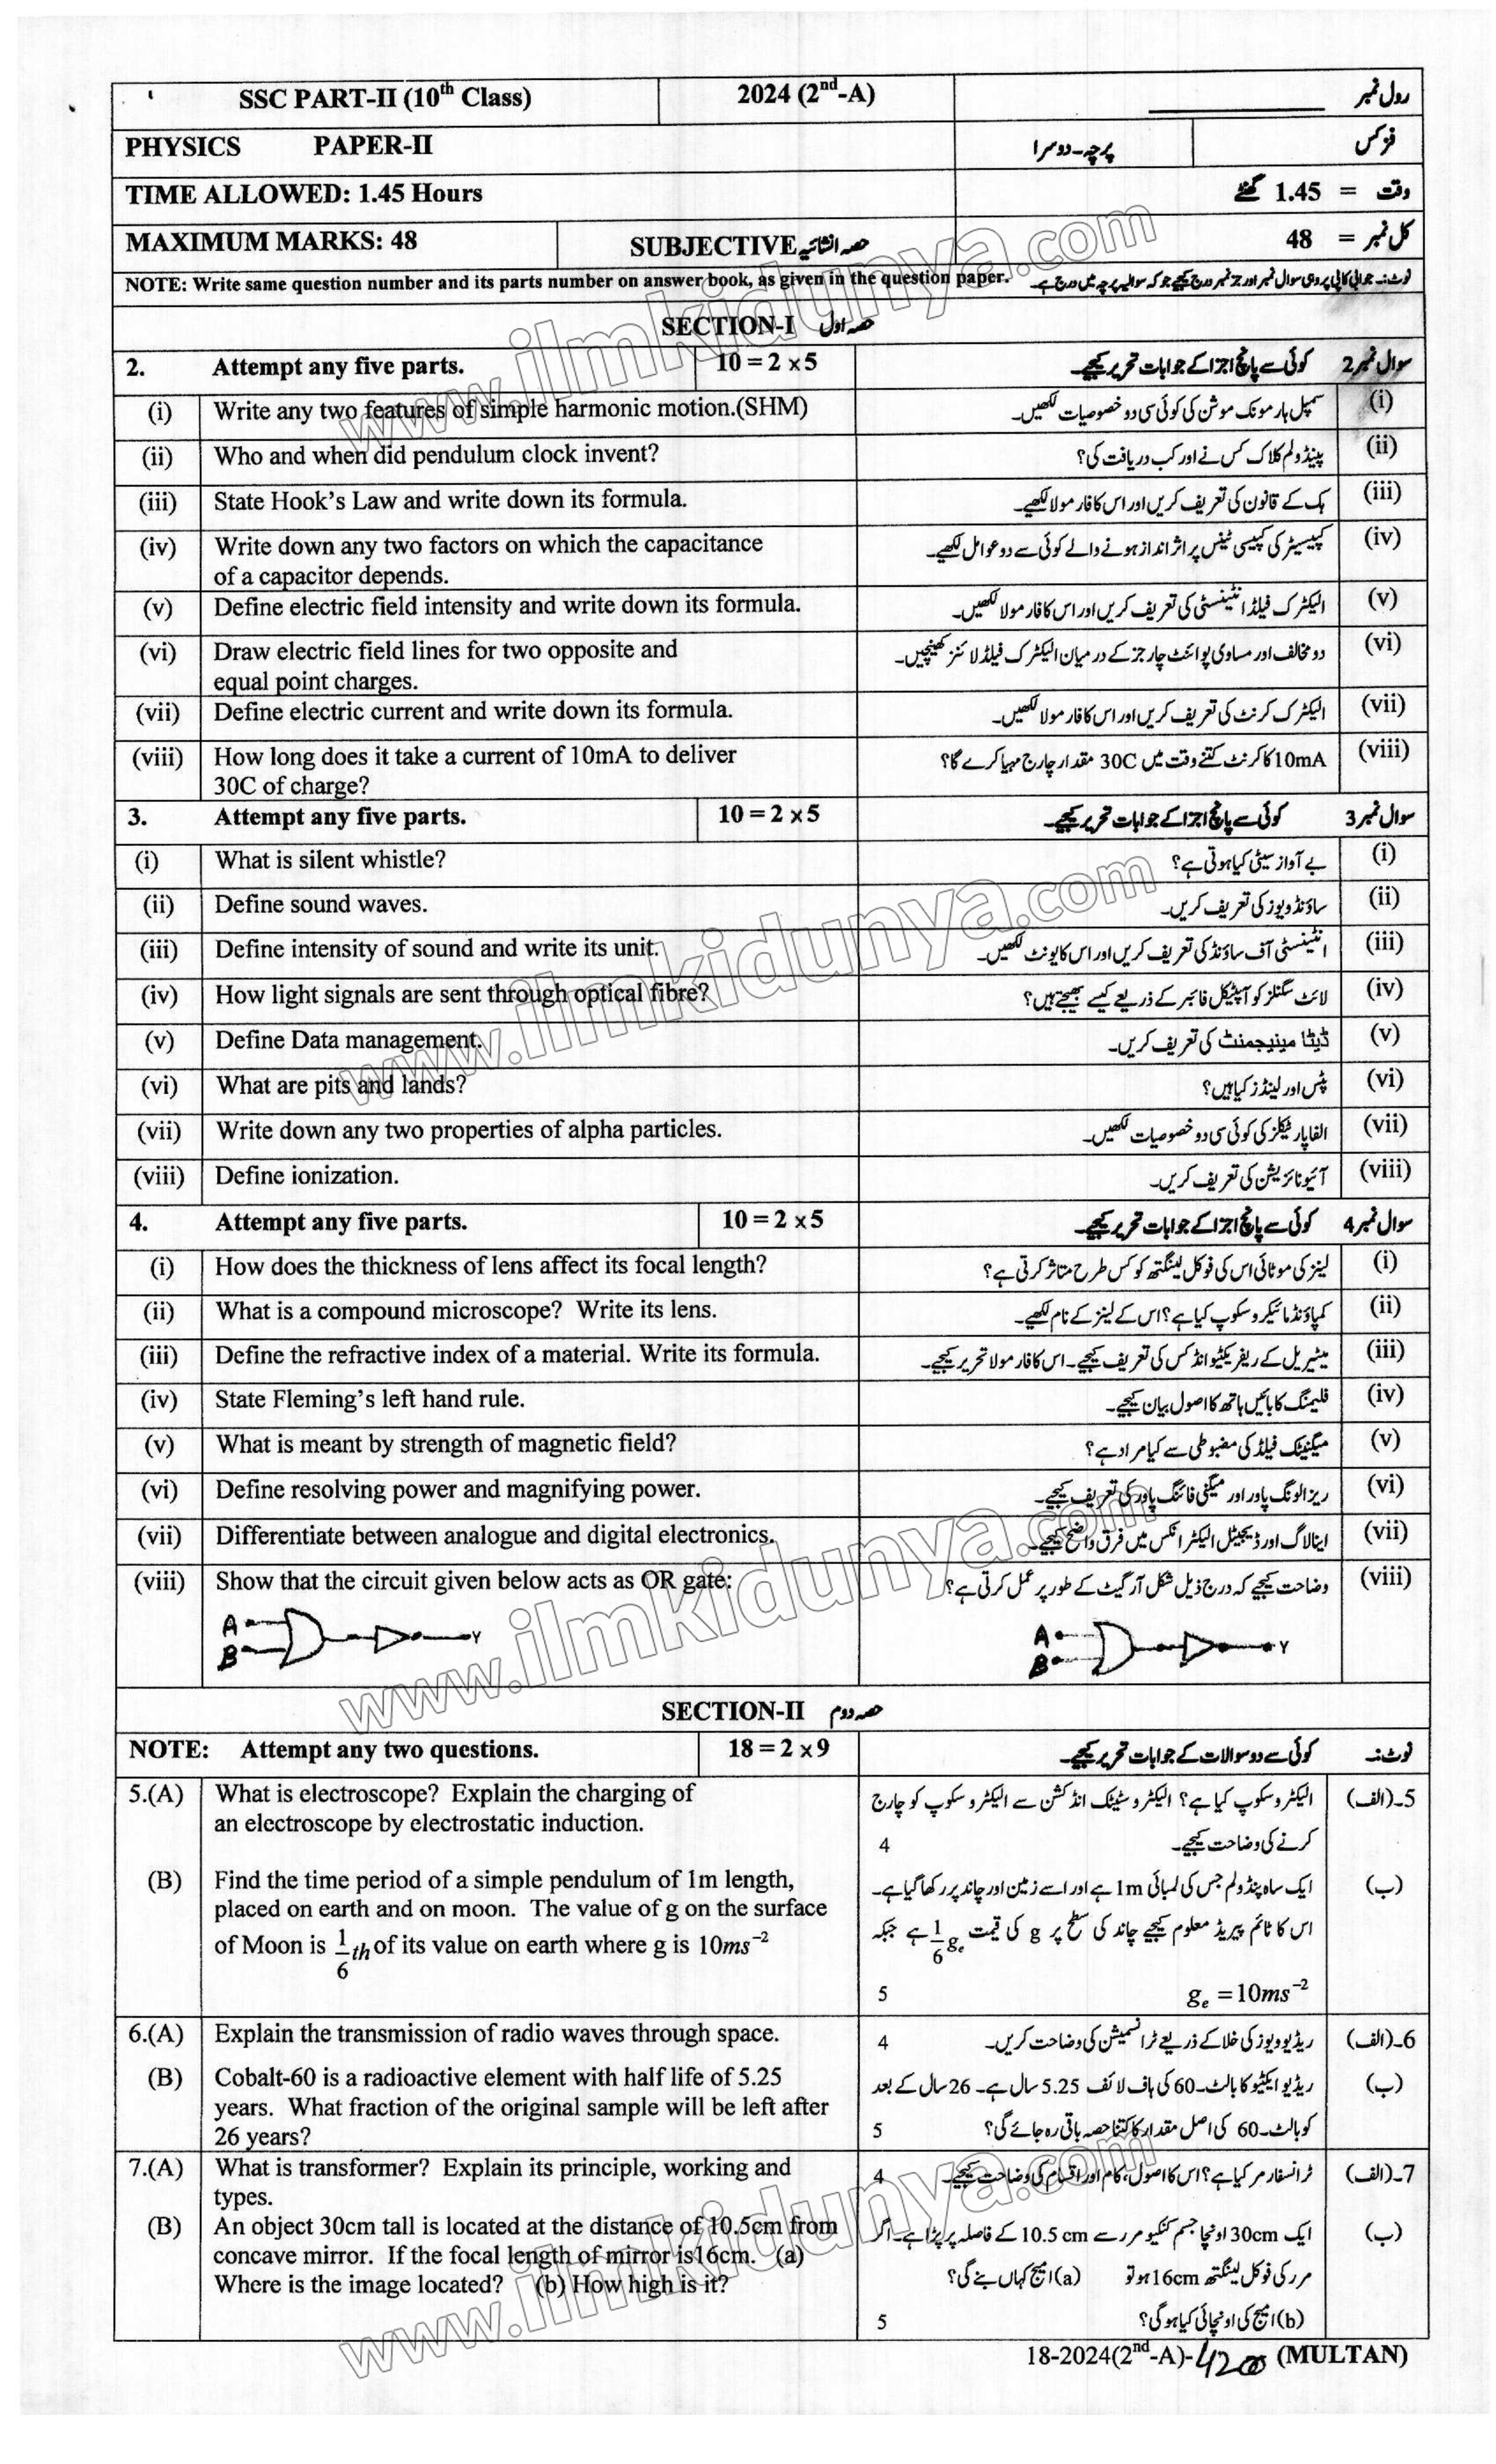 SSC PART-II (10th Class) 2024 (2nd-A) رول نمبر ____________
PHYSICS PAPER-II پرچہ۔دوسرا فزکس
TIME ALLOWED: 1.45 Hours وقت = 1.45 گھنٹے
MAXIMUM MARKS: 48 SUBJECTIVE حصہ انشائیہ کل نمبر = 48
NOTE: Write same question number and its parts number on answer book, as given in the question paper. نوٹ:۔ جوابی کاپی پر وہی سوال نمبر اور جز نمبر درج کیجیے جو کہ سوالیہ پرچہ میں درج ہے۔
SECTION-I حصہ اول
2. Attempt any five parts. 10 = 2 x 5 کوئی سے پانچ اجزا کے جوابات تحریر کیجیے۔ سوال نمبر 2
(i) Write any two features of simple harmonic motion.(SHM) سمپل ہارمونک موشن کی کوئی سی دو خصوصیات لکھیں۔ (i)
(ii) Who and when did pendulum clock invent? پینڈولم کلاک کس نے اور کب دریافت کی؟ (ii)
(iii) State Hook's Law and write down its formula. ہک کے قانون کی تعریف کریں اور اس کا فارمولا لکھیے۔ (iii)
(iv) Write down any two factors on which the capacitance کپیسیٹر کی کپیسی ٹینس پر اثر انداز ہونے والے کوئی سے دو عوامل لکھیے۔ (iv)
of a capacitor depends.
(v) Define electric field intensity and write down its formula. الیکٹرک فیلڈ انٹینسٹی کی تعریف کریں اور اس کا فارمولا لکھیں۔ (v)
(vi) Draw electric field lines for two opposite and دو مخالف اور مساوی پوائنٹ چارجز کے درمیان الیکٹرک فیلڈ لائنز کھینچیں۔ (vi)
equal point charges.
(vii) Define electric current and write down its formula. الیکٹرک کرنٹ کی تعریف کریں اور اس کا فارمولا لکھیں۔ (vii)
(viii) How long does it take a current of 10mA to deliver 10mA کا کرنٹ کتنے وقت میں 30C مقدار چارج مہیا کرے گا؟ (viii)
30C of charge?
3. Attempt any five parts. 10 = 2 x 5 کوئی سے پانچ اجزا کے جوابات تحریر کیجیے۔ سوال نمبر 3
(i) What is silent whistle? بے آواز سیٹی کیا ہوتی ہے؟ (i)
(ii) Define sound waves. ساؤنڈ ویوز کی تعریف کریں۔ (ii)
(iii) Define intensity of sound and write its unit. انٹینسٹی آف ساؤنڈ کی تعریف کریں اور اس کا یونٹ لکھیں۔ (iii)
(iv) How light signals are sent through optical fibre? لائٹ سگنلز کو آپٹیکل فائبر کے ذریعے کیسے بھیجتے ہیں؟ (iv)
(v) Define Data management. ڈیٹا مینیجمنٹ کی تعریف کریں۔ (v)
(vi) What are pits and lands? پٹس اور لینڈز کیا ہیں؟ (vi)
(vii) Write down any two properties of alpha particles. الفا پارٹیکلز کی کوئی سی دو خصوصیات لکھیں۔ (vii)
(viii) Define ionization. آئیونائزیشن کی تعریف کریں۔ (viii)
4. Attempt any five parts. 10 = 2 x 5 کوئی سے پانچ اجزا کے جوابات تحریر کیجیے۔ سوال نمبر 4
(i) How does the thickness of lens affect its focal length? لینز کی موٹائی اس کی فوکل لینگتھ کو کس طرح متاثر کرتی ہے؟ (i)
(ii) What is a compound microscope? Write its lens. کمپاؤنڈ مائیکروسکوپ کیا ہے؟ اس کے لینز کے نام لکھیے۔ (ii)
(iii) Define the refractive index of a material. Write its formula. میٹیریل کے ریفریکٹیو انڈکس کی تعریف کیجیے۔ اس کا فارمولا تحریر کیجیے۔ (iii)
(iv) State Fleming's left hand rule. فلیمنگ کا بائیں ہاتھ کا اصول بیان کیجیے۔ (iv)
(v) What is meant by strength of magnetic field? میگنیٹک فیلڈ کی مضبوطی سے کیا مراد ہے؟ (v)
(vi) Define resolving power and magnifying power. ریزالونگ پاور اور میگنی فائنگ پاور کی تعریف کیجیے۔ (vi)
(vii) Differentiate between analogue and digital electronics. اینالاگ اور ڈیجیٹل الیکٹرانکس میں فرق واضح کیجیے۔ (vii)
(viii) Show that the circuit given below acts as OR gate: وضاحت کیجیے کہ درج ذیل شکل آر گیٹ کے طور پر عمل کرتی ہے؟ (viii)
A B Y A B Y
SECTION-II حصہ دوم
NOTE: Attempt any two questions. 18 = 2 x 9 کوئی سے دو سوالات کے جوابات تحریر کیجیے۔ نوٹ:۔
5.(A) What is electroscope? Explain the charging of الیکٹروسکوپ کیا ہے؟ الیکٹروسٹیٹک انڈکشن سے الیکٹروسکوپ کو چارج 5۔(الف)
an electroscope by electrostatic induction. کرنے کی وضاحت کیجیے۔ 4
(B) Find the time period of a simple pendulum of 1m length, ایک سادہ پنڈولم جس کی لمبائی 1m ہے اور اسے زمین اور چاند پر رکھا گیا ہے۔ (ب)
placed on earth and on moon. The value of g on the surface اس کا ٹائم پیریڈ معلوم کیجیے چاند کی سطح پر g کی قیمت 1/6 ge ہے جبکہ
of Moon is 1/6 th of its value on earth where g is 10ms⁻²
ge = 10ms⁻² 5
6.(A) Explain the transmission of radio waves through space. ریڈیو ویوز کی خلا کے ذریعے ٹرانسمیشن کی وضاحت کریں۔ 4 6۔(الف)
(B) Cobalt-60 is a radioactive element with half life of 5.25 ریڈیو ایکٹیو کابالٹ۔60 کی ہاف لائف 5.25 سال ہے۔ 26 سال کے بعد (ب)
years. What fraction of the original sample will be left after کوبالٹ۔60 کی اصل مقدار کا کتنا حصہ باقی رہ جائے گی؟ 5
26 years?
7.(A) What is transformer? Explain its principle, working and ٹرانسفارمر کیا ہے؟ اس کا اصول، کام اور اقسام کی وضاحت کیجیے۔ 4 7۔(الف)
types.
(B) An object 30cm tall is located at the distance of 10.5cm from ایک 30cm اونچا جسم کنکیو مرر سے 10.5 cm کے فاصلہ پر پڑا ہے۔ اگر (ب)
concave mirror. If the focal length of mirror is16cm. (a) مرر کی فوکل لینگتھ 16cm ہو تو (a) امیج کہاں بنے گی؟
Where is the image located? (b) How high is it? (b) امیج کی اونچائی کیا ہوگی؟ 5
18-2024(2nd-A)-4200 (MULTAN)
www.ilmkidunya.com
www.ilmkidunya.com
www.ilmkidunya.com
www.ilmkidunya.com